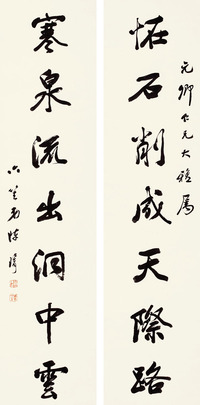 元卿仁兄大雅属
怪石削成天際路
寒泉流出洞中雲